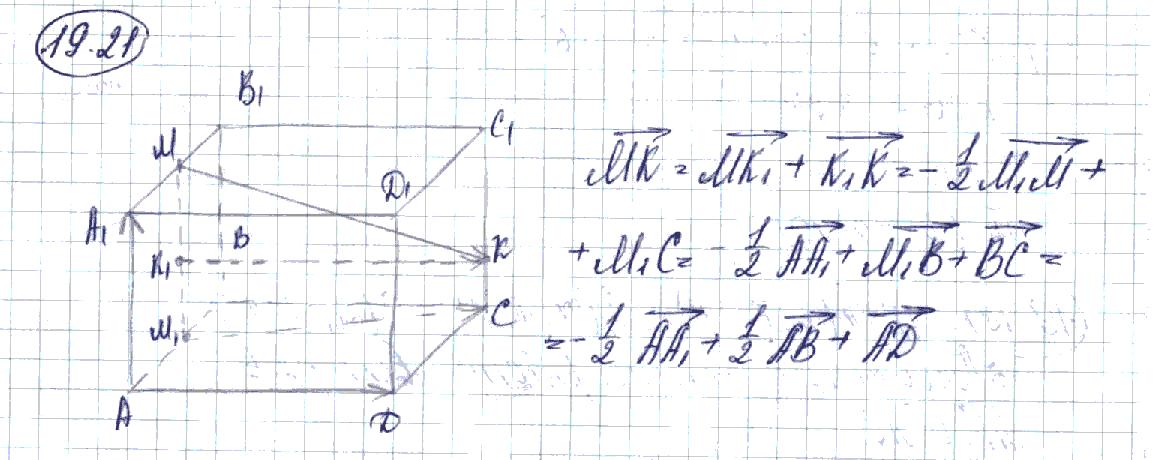 19.21
B₁
C₁
M
D₁
A₁
B
K₁
K
M₁
C
A
D
MK = MK₁ + K₁K = - 1/2 M₁M +
+ M₁C = - 1/2 AA₁ + M₁B + BC =
= - 1/2 AA₁ + 1/2 AB + AD